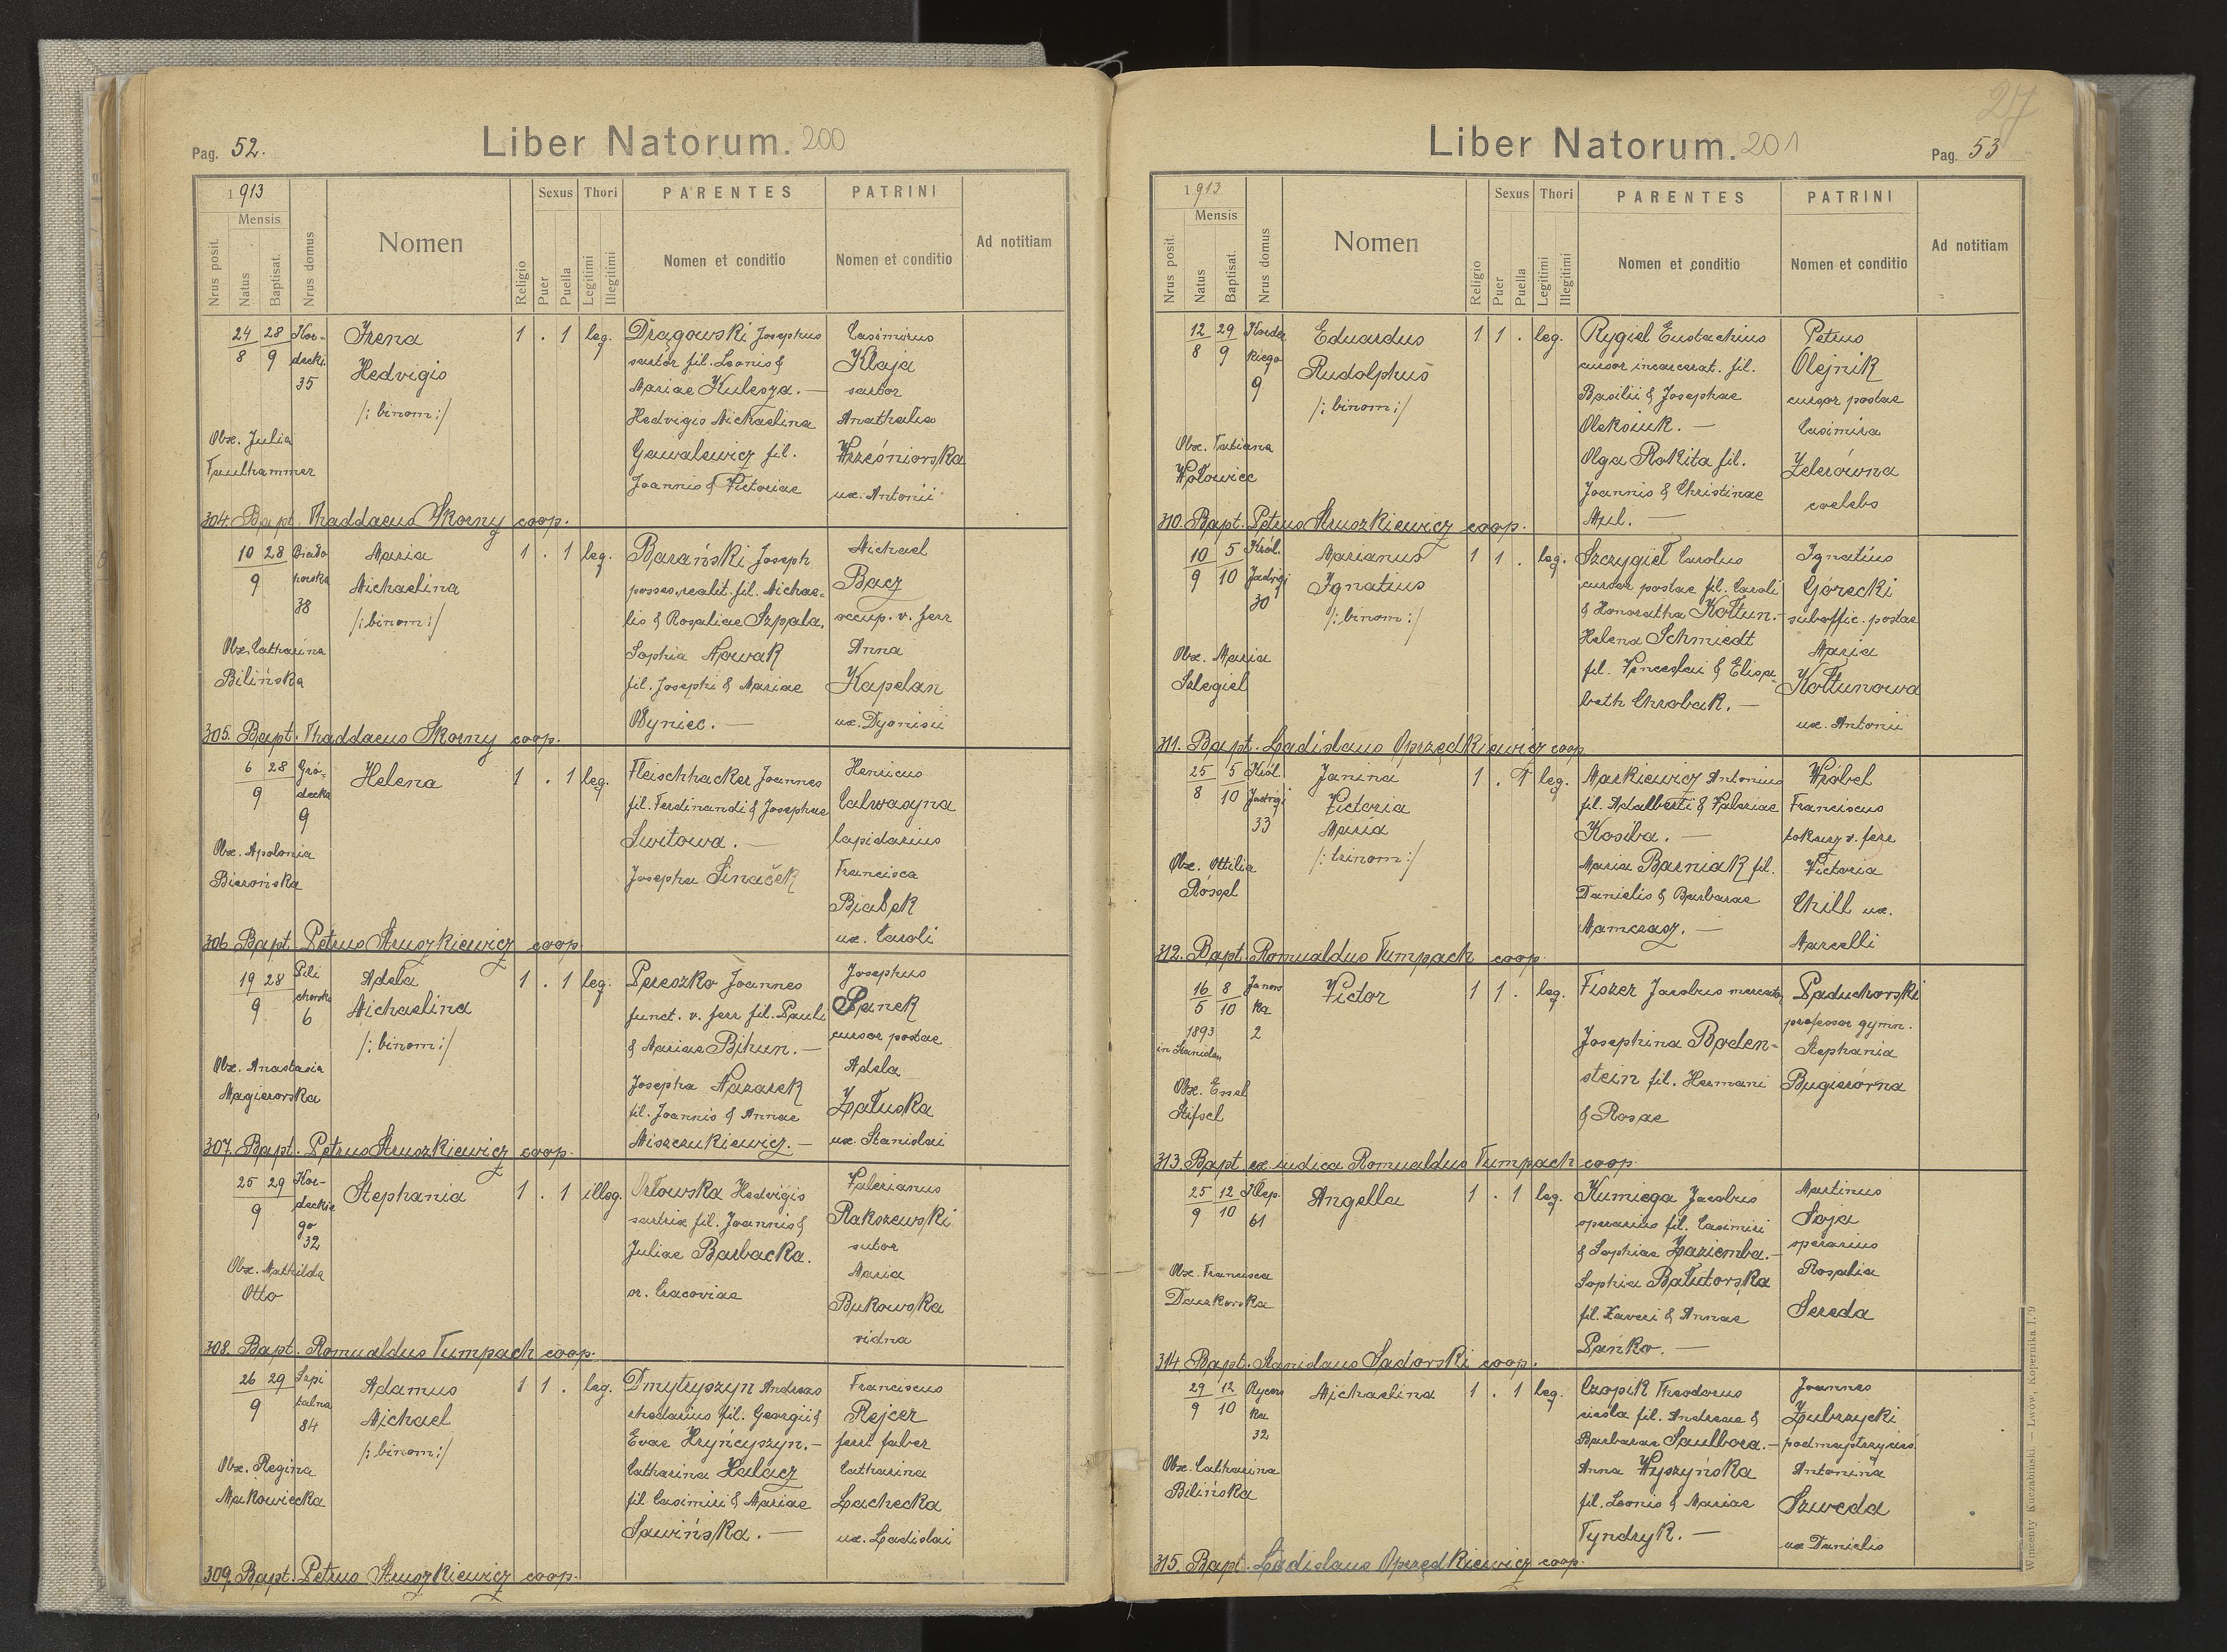 Pag. 52.
Liber Natorum. 200
1913
Mensis
Nrus posit.
Natus
Baptisat.
Nrus domus
Nomen
Religio
Sexus
Puer
Puella
Thori
Legitimi
Illegitimi
PARENTES
Nomen et conditio
PATRINI
Nomen et conditio
Ad notitiam
24/8 28/9 Kor-
decki
35
Irena
Hedvigis
/: binom :/
1 . 1 leg.
Dragowski Josephus
sartor fil. Leonis &
Mariae Kulesza. —
Hedvigis Michaelina
Gawalewicz fil.
Joannis & Victoriae
Casimirus
Klaja
sartor
Anathalia
Wrześniowska
ux. Antonii
Obx. Julia
Faulhammer
304. Bapt. Thaddaeus Skorny coop.
10/9 28
38
Maria
Michaelina
/: binom :/
1 . 1 leg.
Barański Joseph
posses. realit. fil. Michae-
lis & Rosaliae Szpala.
Sophia Nowak
fil. Josephi & Mariae
Olyniec. —
Michael
Bacz
occup. v. ferr
Anna
Kapelan
ux. Dyonisii
Obx. Catharina
Bilińska
305. Bapt. Thaddaeus Skorny coop.
6/9 28 Gró-
decka
9
Helena
1 . 1 leg.
Fleischhacker Joannes
fil. Ferdinandi & Josephae
Switowa. —
Josepha Sinaček
Henricus
Calwasyna
lapidarius
Francisca
Białek
ux. Caroli
Obx. Apolonia
Bierońska
306. Bapt. Petrus Struszkiewicz coop.
19/9 28 Pili
chowska
6
Adela
Michaelina
/: binom :/
1 . 1 leg.
Pereszko Joannes
funct. v. ferr fil. Pauli
& Mariae Bihun. —
Josepha Nazarek
fil. Joannis & Annae
Miszczukiewicz. —
Josephus
Panek
cursor postae
Adela
Załuska
ux. Stanislai
Obx. Anastasia
Magierowska
307. Bapt. Petrus Struszkiewicz coop.
25/9 29 Kor-
deckie
go
32
Stephania
1 . 1 illeg.
Orłowska Hedvigis
sartrix fil. Joannis &
Juliae Barbacka.
or. Cracoviae
Valerianus
Rakszewski
sutor
Maria
Bukowska
vidna
Obx. Mathilda
Otto
308. Bapt. Romualdus Tumpach coop.
26/9 29 Szpi
talna
84
Adamus
Michael
/: binom :/
1 1 . leg.
Dmytryszyn Andreas
rhedarius fil. Georgii &
Evae Hryńcyszyn. —
Catharina Halacz
fil. Casimiri & Mariae
Sawińska. —
Franciscus
Rejcer
ferri faber
Catharina
Lachecka
ux. Ladislai
Obx. Regina
Makowiecka
309. Bapt. Petrus Struszkiewicz coop.
27
Liber Natorum. 201
Pag. 53
1913
Mensis
Nrus posit.
Natus
Baptisat.
Nrus domus
Nomen
Religio
Sexus
Puer
Puella
Thori
Legitimi
Illegitimi
PARENTES
Nomen et conditio
PATRINI
Nomen et conditio
Ad notitiam
12/8 29/9 Kordec
kiego
9
Eduardus
Rudolphus
/: binom :/
1 1 . leg.
Rygiel Eustachius
cursor incarcerat. fil.
Basilii & Josephae
Oleksiuk. —
Olga Rokita fil.
Joannis & Christinae
Mul. —
Petrus
Olejnik
cursor postae
Casimira
Zelerówna
coelebs
Obx. Tatiana
Wołowiec
310. Bapt. Petrus Struszkiewicz coop.
10/9 5/10 Król.
Jadwigi
30
Marianus
Ignatius
/: binom :/
1 1 . leg.
Szczygieł Carolus
cursor postae fil. Caroli
& Honoratha Kołtun. -
Helena Schmiedt
fil. Venceslai & Elisa-
beth Chrobak. —
Ignatius
Górecki
suboffic. postae
Maria
Kołtunowa
ux. Antonii
Obx. Maria
Szlegiel
311. Bapt. Ladislaus Oprzędkiewicz coop.
25/8 5/10 Król
Jadwigi
33
Janina
Victoria
Maria
/: trinom :/
1 . 1 leg.
Markiewicz Antonius
fil. Adalberti & Valeriae
Kosiba. —
Maria Barniak fil.
Danielis & Barbarae
Mamczasz. —
Wróbel
Franciscus
tokarz v. ferr
Victoria
Chill ux.
Marcelli
Obx. Ottilia
Rössel
312. Bapt. Romualdus Tumpach coop.
16/5 8/10 Janow
ka
1893 2
in Stanislau
Victor
1 1 . leg.
Fiszer Jacobus mercator
Josephina Boden-
stein fil. Hermani
& Rosae
Paduchowski
professor gymn.
Stephania
Bugierówna
Obx. Essel
Stifsel
313. Bapt. ex iudica Romualdus Tumpach coop.
25/9 12/10 Klep.
61
Angella
1 . 1 leg.
Kumiega Jacobus
operarius fil. Casimiri
& Sophiae Zaziemba. —
Sophia Bałutowska
fil. Xaveri & Annae
Pańko. —
Martinus
Soja
operarius
Rosalia
Sereda
Obx. Francisca
Daszkowska
314. Bapt. Stanislaus Sadowski coop.
29/9 12/10 Rycers
ka
32
Michaelina
1 . 1 leg.
Czopik Theodorus
fil. Andreae &
Barbarae Saulbora. —
Anna Wyszyńska
fil. Leonis & Mariae
Tyndryk. —
Joannes
Zubrzycki
Antonina
Szweda
ux Danielis
Obx. Catharina
Bilińska
315. Bapt. Ladislaus Oprzędkiewicz coop.
Wincenty Kuczabiński. — Lwów, Kopernika l. 9